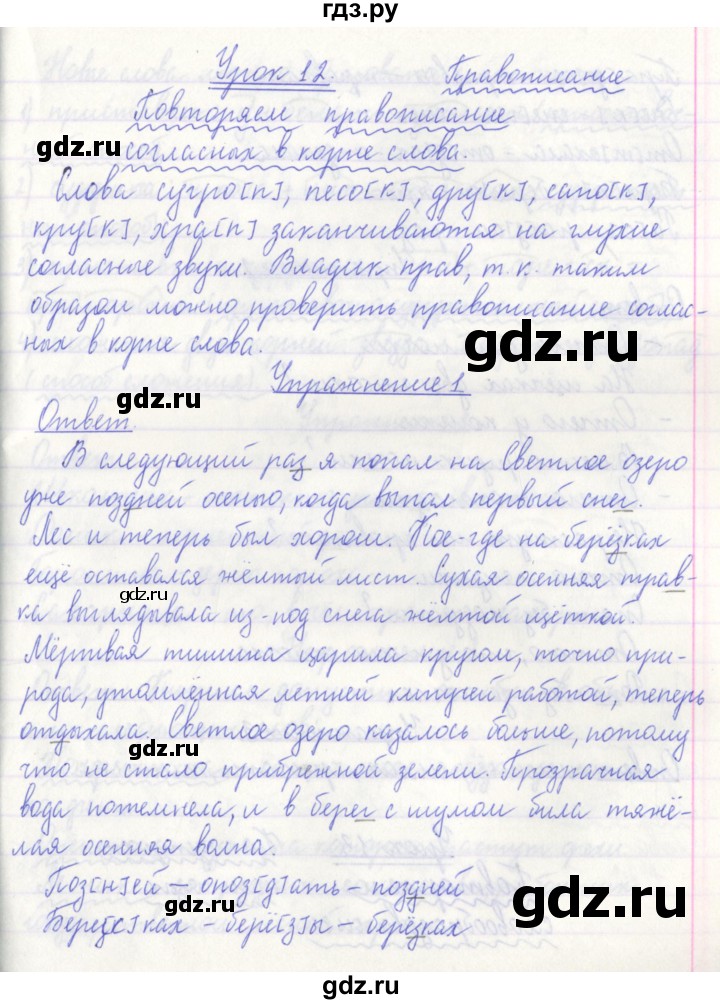 гдз.ру
Урок 12. Правописание
Повторяем правописание
согласных в корне слова.
Слова сугро[п], песо[к], дру[к], сапо[к],
кру[к], хра[п] заканчиваются на глухие
согласные звуки. Владик прав, т. к. таким
образом можно проверить правописание соглас-
ных в корне слова.
Упражнение 1
Ответ.
В следующий раз я попал на Светлое озеро
уже поздней осенью, когда выпал первый снег.
Лес и теперь был хорош. Кое-где на берёзках
ещё оставался жёлтый лист. Сухая осенняя трав-
ка выглядывала из-под снега жёлтой щёткой.
Мёртвая тишина царила кругом, точно при-
рода, утомлённая летней кипучей работой, теперь
отдыхала. Светлое озеро казалось больше, потому
что не стало прибрежной зелени. Прозрачная
вода потемнела, и в берег с шумом била тяжё-
лая осенняя волна.
Поз[н]ей – опоз[д]ать – поздней
Бере[с]ках – берё[з]ы – берёзках
gdz.ru
gdz.ru
gdz.ru
gdz.ru
gdz.ru
gdz.ru
gdz.ru
gdz.ru
gdz.ru
gdz.ru
gdz.ru